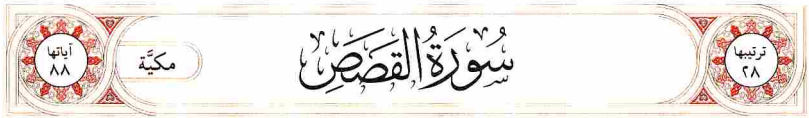 ترتيبها
٢٨
سُورَةُ القَصَصِ
مكيَّة
آياتها
٨٨